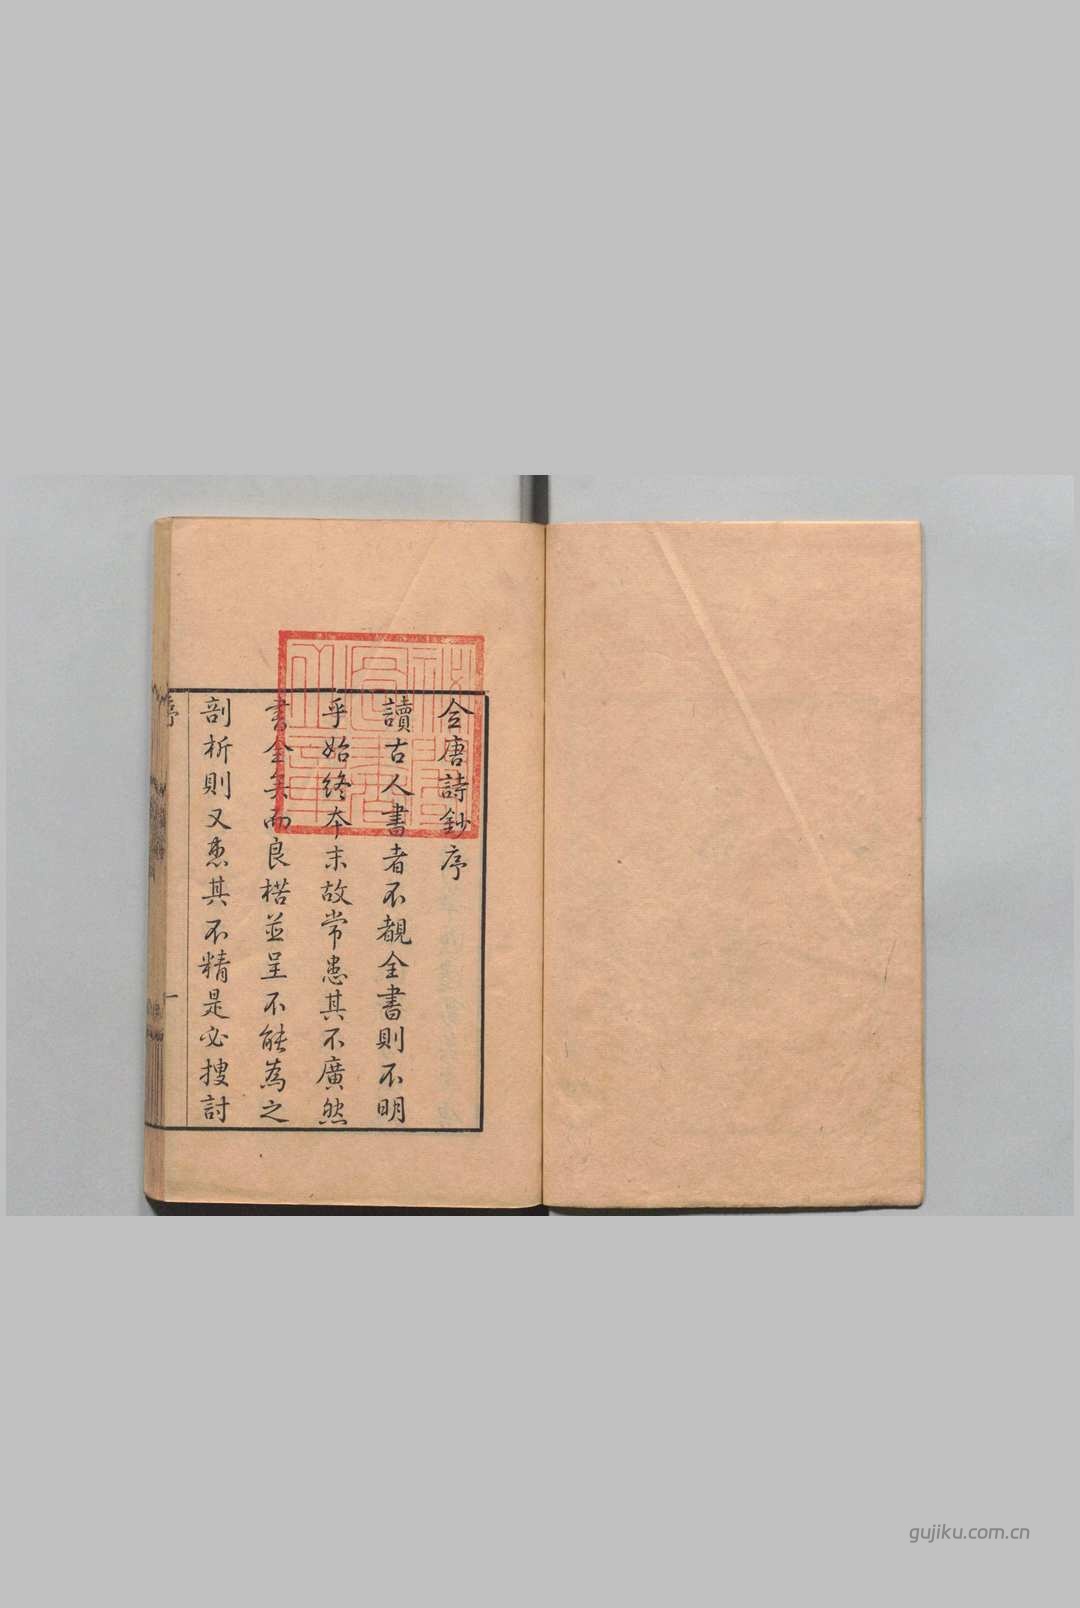 全唐詩鈔序
讀古人書者不覩全書則不明
乎始終本末故常患其不廣然
書全矣而良楛並呈不能為之
剖析則又患其不精是必搜討
序
一
gujiku.com.cn